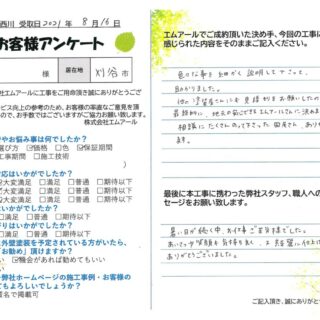 西川 受取日 2021年 8月16日
お客様アンケート
様 居住地 刈谷市
社エムアールに工事をご用命頂き誠にありがとうござ
ビス向上の参考のため、お客様の率直なご意見を頂
ので、お手数ではございますがご協力お願い致します。
株式会社エムアール
やお悩み事は何でしたか?
選び方 価格 色 保証期間
工事期間 施工技術
応はいかがでしたか?
大変満足 満足 普通 期待以下
はいかがでしたか?
大変満足 満足 普通 期待以下
りはいかがでしたか?
満足 普通 期待以下
外壁塗装を予定されている方がいたら、
「お勧め」頂けますか?
い 機会があれば勧めてもいい
い
を弊社ホームページの施工事例・お客様の
てもよろしいでしょうか?
匿名で掲載可
エムアールでご成約頂いた決め手、今回の工事に
感じられた内容をそのままご記入ください。
色々な事を細かく説明して下さって、
助かりました。
他の塗装店さんにも見積りをお願いしたので
最終的に、地元の気がするエムアールさんに決め
相談にたくさんのって下さった
ます。
最後に本工事に携わった弊社スタッフ、職人への
セージをお願い致します。
暑い日が続く中、お仕事ご苦労さまでした。
あいさつや笑顔も気持ち良く、
ありがとうございました。
ご記入頂き、誠にありがとう